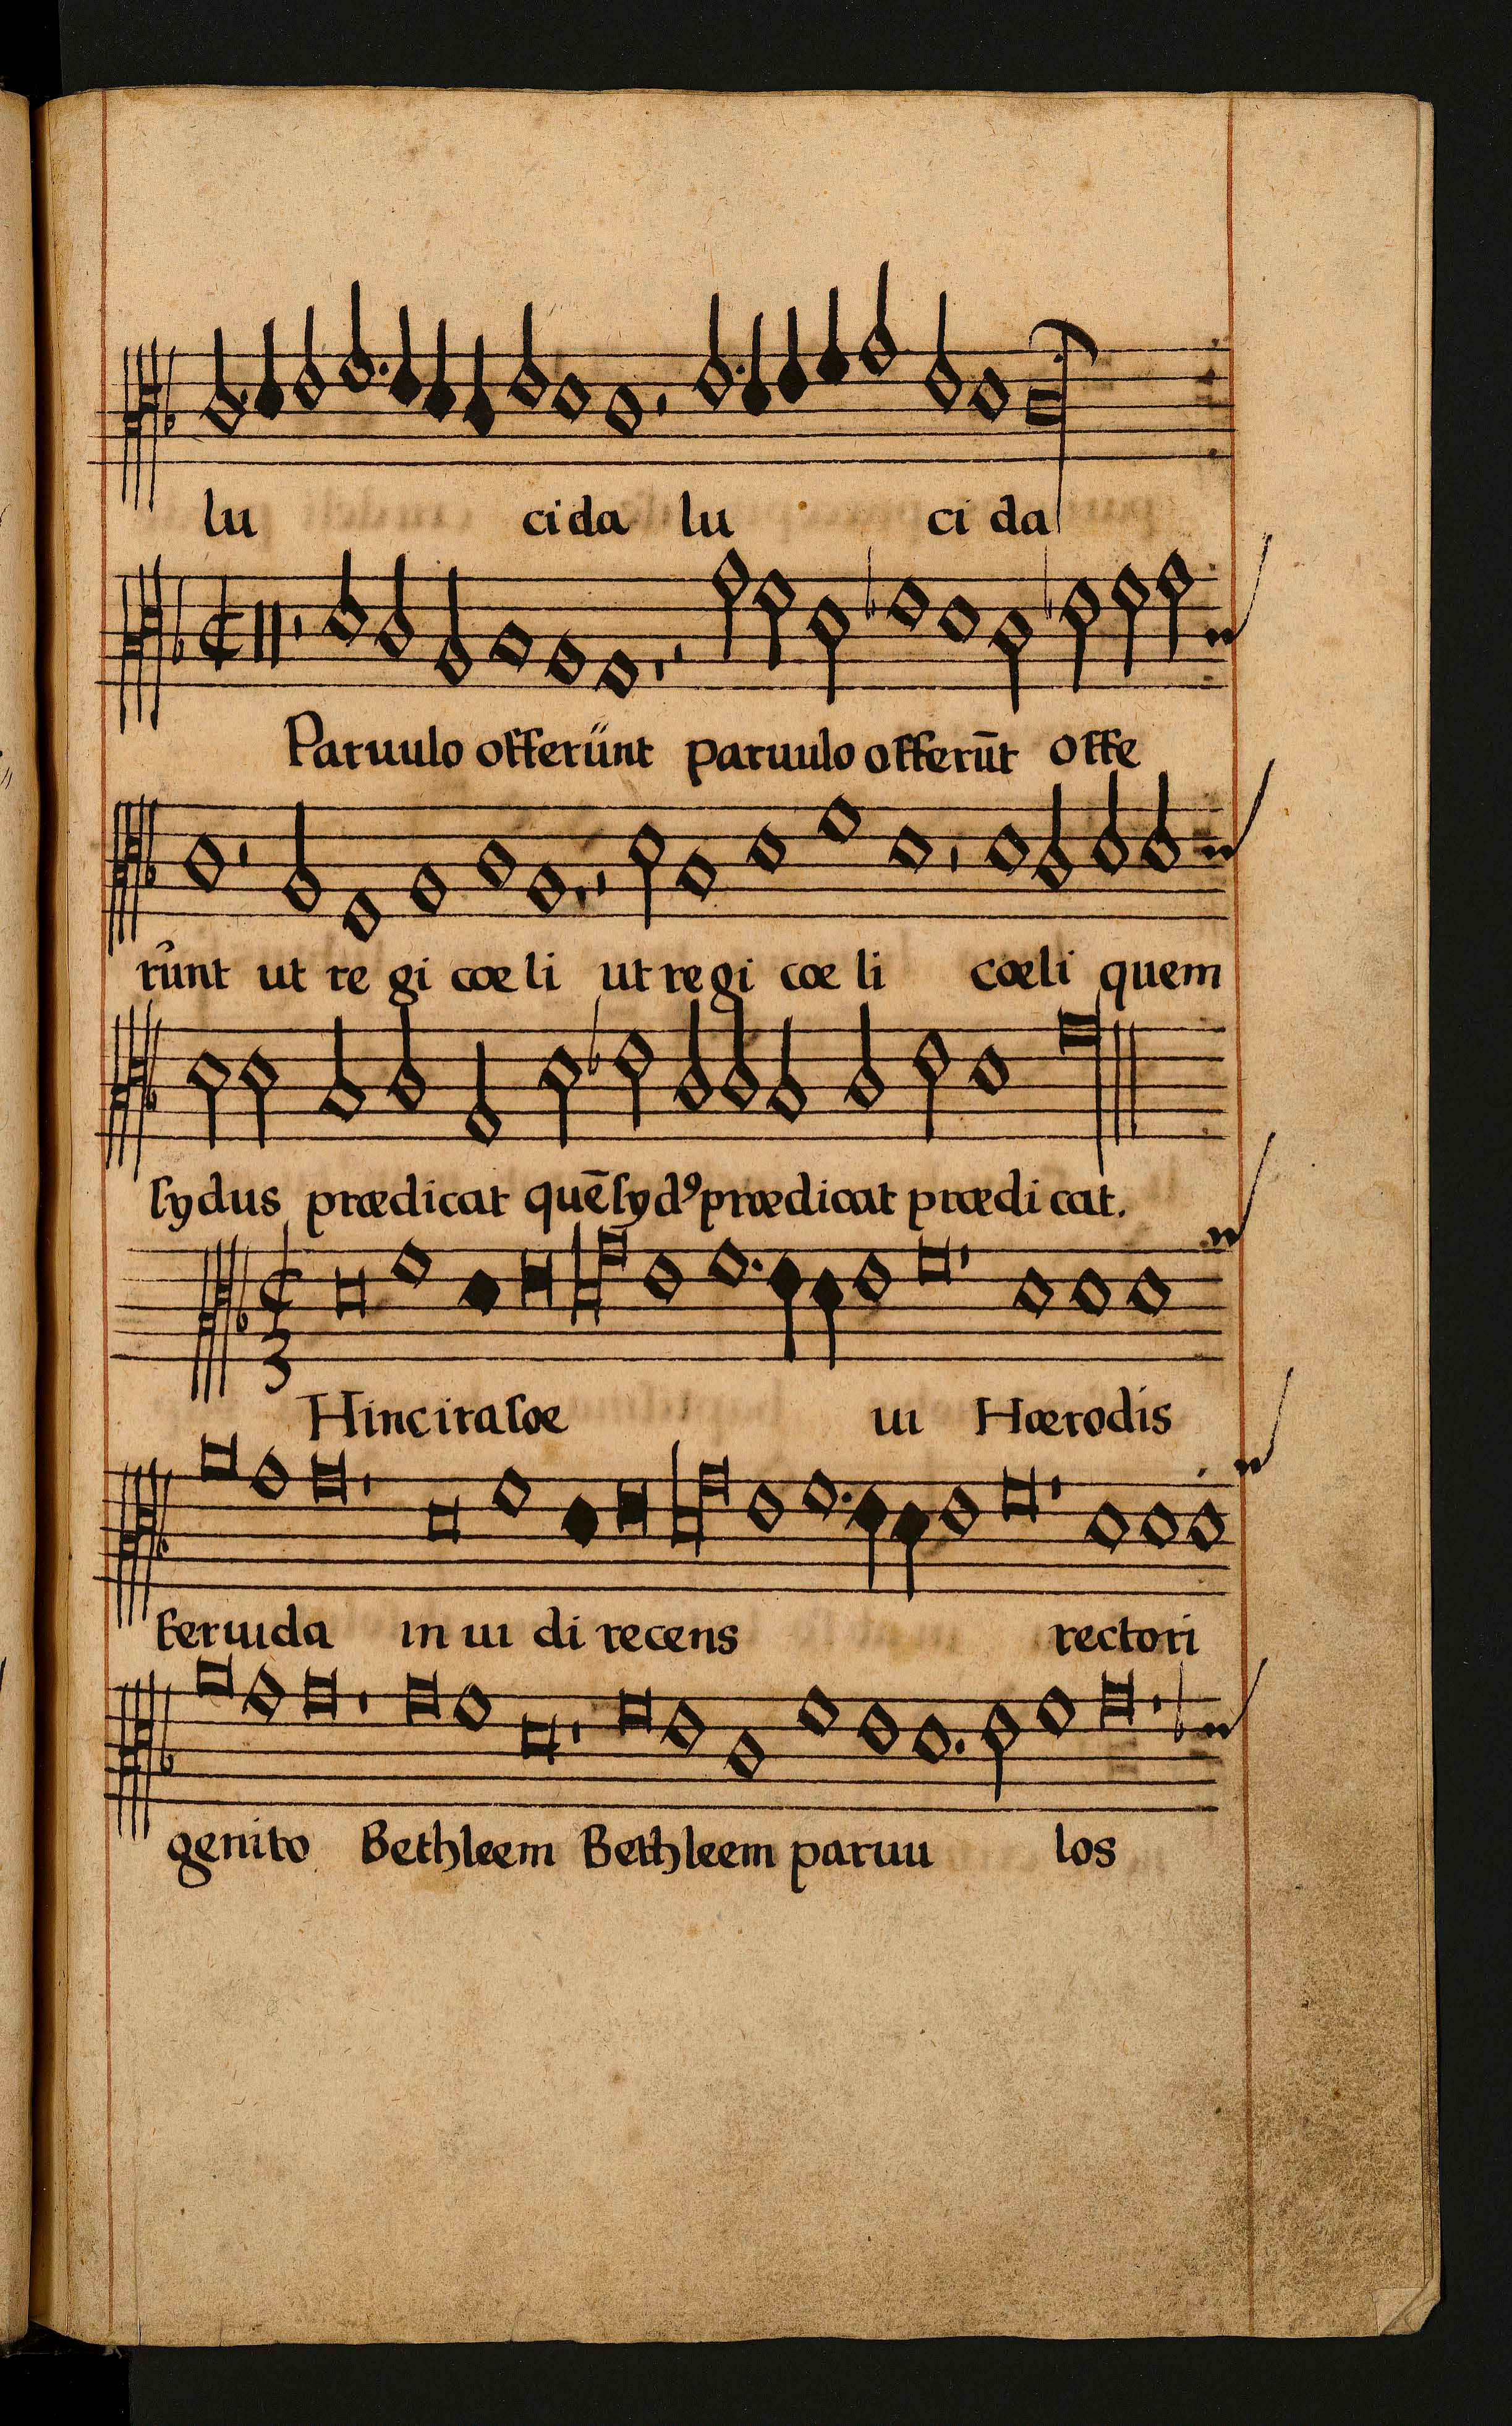 lu cida lu ci da
Paruulo offerūnt paruulo offerūt offe
runt ut re gi cœ li ut regi cœ li cœli quem
ſydus prædicat quē ſyd⁹ prædicat prædi cat.
Hinc ira ſæ ui Hærodis
feruida in ui di recens rectori
genito Bethleem Bethleem paruu los